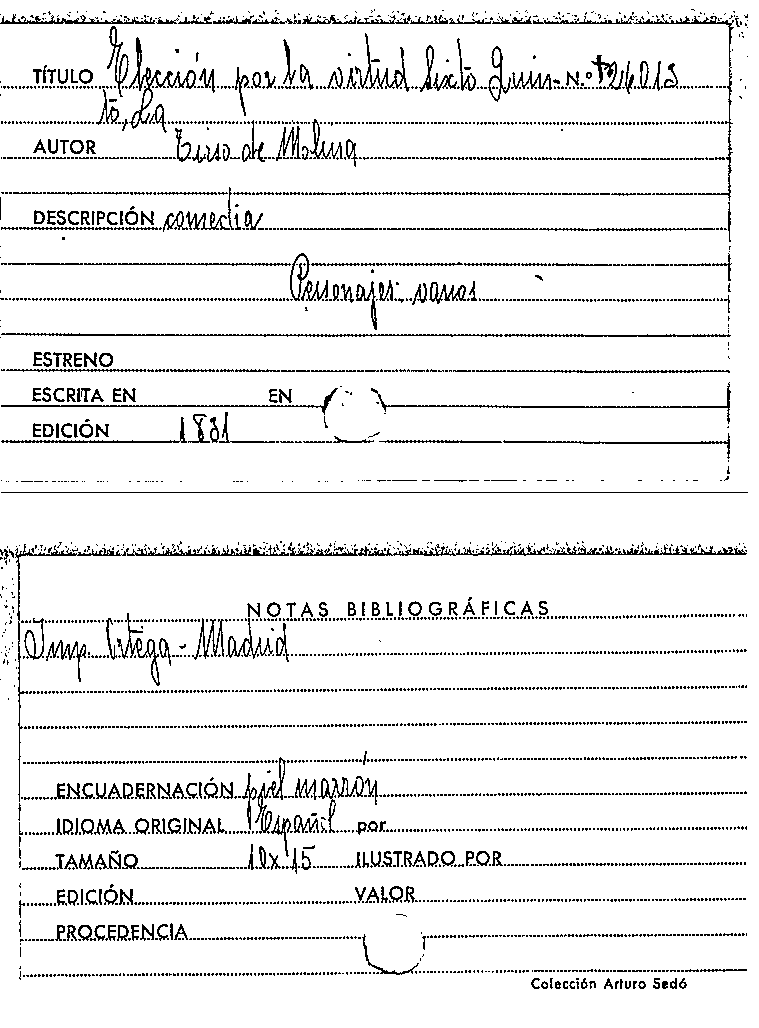 TÍTULO Elección por la virtud Sixto Quin- N.º 24013
to, La
AUTOR Tirso de Molina
DESCRIPCIÓN comedia
Personajes: varios
ESTRENO
ESCRITA EN EN
EDICIÓN 1831
NOTAS BIBLIOGRÁFICAS
Imp. Ortega - Madrid
ENCUADERNACIÓN piel marrón
IDIOMA ORIGINAL Español por
TAMAÑO 10x15 ILUSTRADO POR
EDICIÓN VALOR
PROCEDENCIA
Colección Arturo Sedó